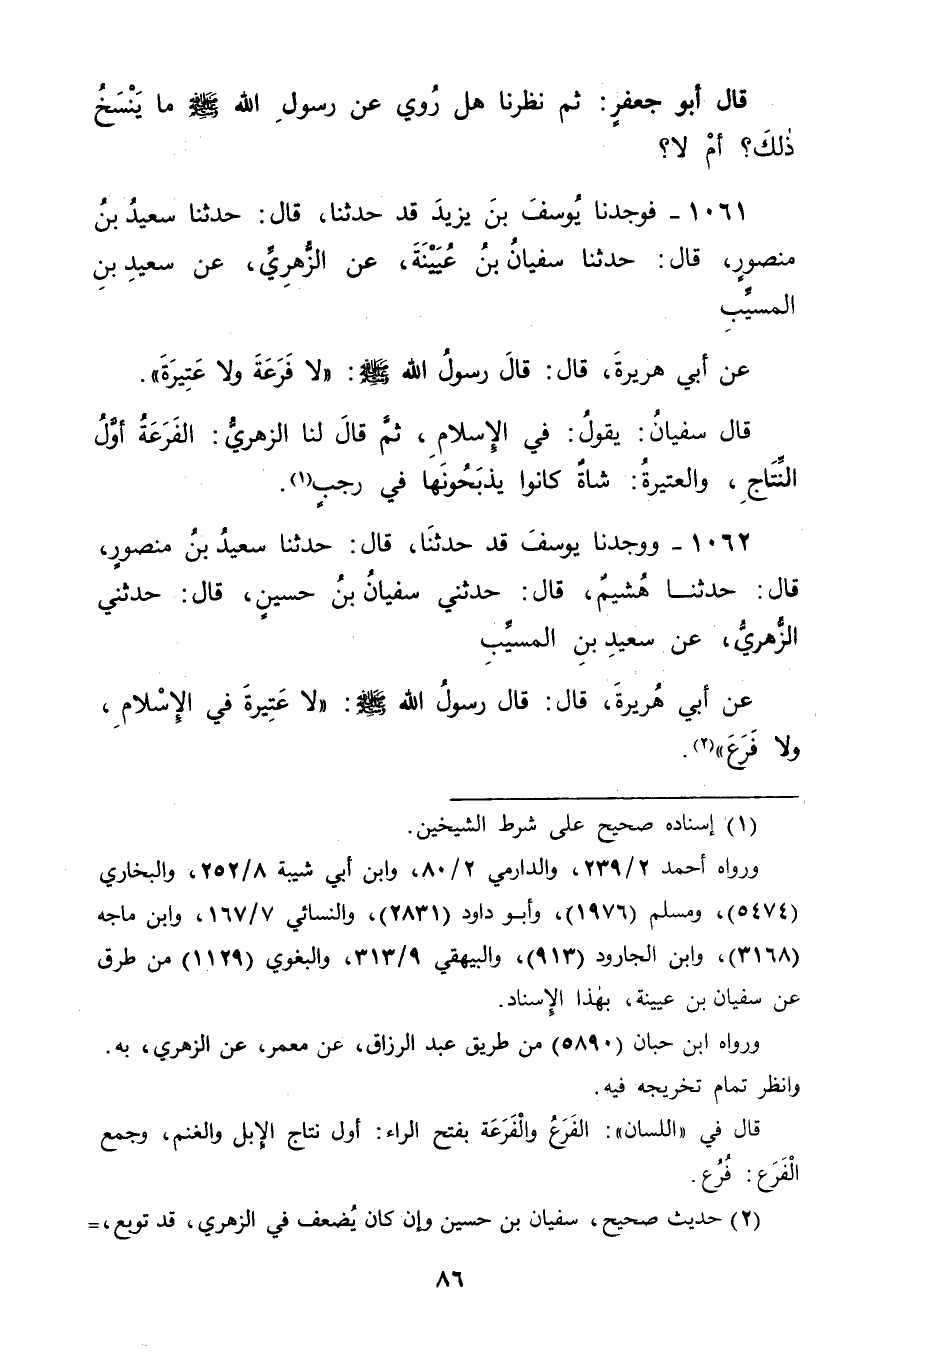 قال أبو جعفرٍ: ثم نظرنا هل رُوي عن رسولِ الله ﷺ ما يَنْسَخُ
ذٰلكَ؟ أمْ لا؟
١٠٦١ ـ فوجدنا يُوسفَ بنَ يزيدَ قد حدثنا، قال: حدثنا سعيدُ بنُ
منصورٍ، قال: حدثنا سفيانُ بنُ عُيَيْنَةَ، عن الزُّهريِّ، عن سعيدِ بنِ
المسيِّبِ
عن أبي هريرةَ، قال: قالَ رسولُ الله ﷺ: «لا فَرَعَةَ ولا عَتِيرَةَ».
قال سفيانُ: يقولُ: في الإِسلامِ، ثمَّ قالَ لنا الزهريُّ: الفَرَعَةُ أوَّلُ
النِّتَاجِ، والعتيرةُ: شاةٌ كانوا يذبَحُونَها في رجبٍ(١).
١٠٦٢ ـ ووجدنا يوسفَ قد حدثنَا، قال: حدثنا سعيدُ بنُ منصورٍ،
قال: حدثنا هُشيمٌ، قال: حدثني سفيانُ بنُ حسينٍ، قال: حدثني
الزُّهريُّ، عن سعيدِ بنِ المسيِّبِ
عن أبي هُريرةَ، قال: قال رسولُ الله ﷺ: «لا عَتِيرةَ في الإِسْلامِ،
ولا فَرَعَ»(٢).
(١) إسناده صحيح على شرط الشيخين.
ورواه أحمد ٢٣٩/٢، والدارمي ٨٠/٢، وابن أبي شيبة ٢٥٢/٨، والبخاري
(٥٤٧٤)، ومسلم (١٩٧٦)، وأبو داود (٢٨٣١)، والنسائي ١٦٧/٧، وابن ماجه
(٣١٦٨)، وابن الجارود (٩١٣)، والبيهقي ٣١٣/٩، والبغوي (١١٢٩) من طرق
عن سفيان بن عيينة، بهٰذا الإِسناد.
ورواه ابن حبان (٥٨٩٠) من طريق عبد الرزاق، عن معمر، عن الزهري، به.
وانظر تمام تخريجه فيه.
قال في «اللسان»: الفَرَعُ والْفَرَعَة بفتح الراء: أول نتاج الإبل والغنم، وجمع
الْفَرَع: فُرُع.
(٢) حديث صحيح، سفيان بن حسين وإن كان يُضعف في الزهري، قد توبع، =
٨٦